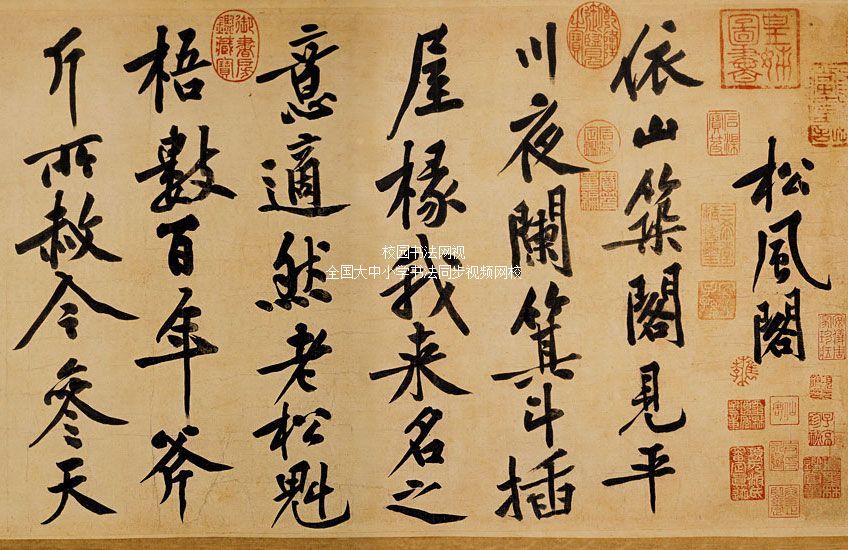 松風閣
依山築閣見平
川夜闌箕斗插
屋椽我来名之
意適然老松魁
梧數百年斧
斤所赦今參天
皇姊圖書
御書房鑑藏寶
校园书法网视
全国大中小学书法同步视频网校